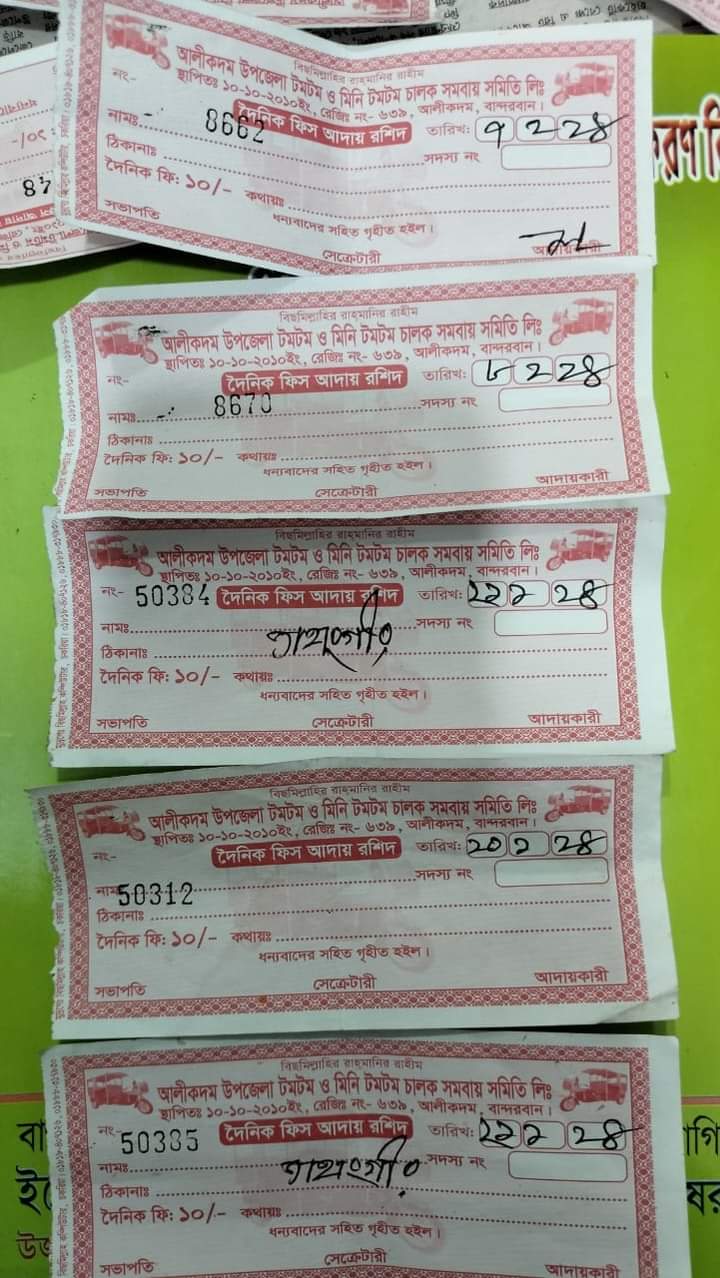 বিছমিল্লাহির রাহমানির রাহীম
আলীকদম উপজেলা টমটম ও মিনি টমটম চালক সমবায় সমিতি লিঃ
স্থাপিতঃ ১০-১০-২০১০ইং, রেজিঃ নং- ৬৩৯, আলীকদম, বান্দরবান।
নং- দৈনিক ফিস আদায় রশিদ তারিখ: ৭ ২ ২৪
নামঃ 8662 সদস্য নং
ঠিকানাঃ
দৈনিক ফি: ১০/- কথায়ঃ
ধন্যবাদের সহিত গৃহীত হইল।
সভাপতি সেক্রেটারী
বিছমিল্লাহির রাহমানির রাহীম
আলীকদম উপজেলা টমটম ও মিনি টমটম চালক সমবায় সমিতি লিঃ
স্থাপিতঃ ১০-১০-২০১০ইং, রেজিঃ নং- ৬৩৯, আলীকদম, বান্দরবান।
নং- দৈনিক ফিস আদায় রশিদ তারিখ: ৮ ২ ২৪
নামঃ 8670 সদস্য নং
ঠিকানাঃ
দৈনিক ফি: ১০/- কথায়ঃ
ধন্যবাদের সহিত গৃহীত হইল।
সভাপতি সেক্রেটারী আদায়কারী
বিছমিল্লাহির রাহমানির রাহীম
আলীকদম উপজেলা টমটম ও মিনি টমটম চালক সমবায় সমিতি লিঃ
স্থাপিতঃ ১০-১০-২০১০ইং, রেজিঃ নং- ৬৩৯, আলীকদম, বান্দরবান।
নং- 50384 দৈনিক ফিস আদায় রশিদ তারিখ: ২৪
নামঃ সদস্য নং
ঠিকানাঃ
দৈনিক ফি: ১০/- কথায়ঃ
ধন্যবাদের সহিত গৃহীত হইল।
সভাপতি সেক্রেটারী আদায়কারী
বিছমিল্লাহির রাহমানির রাহীম
আলীকদম উপজেলা টমটম ও মিনি টমটম চালক সমবায় সমিতি লিঃ
স্থাপিতঃ ১০-১০-২০১০ইং, রেজিঃ নং- ৬৩৯, আলীকদম, বান্দরবান।
নং- দৈনিক ফিস আদায় রশিদ তারিখ: ২০ ২ ২৪
নামঃ 50312 সদস্য নং
ঠিকানাঃ
দৈনিক ফি: ১০/- কথায়ঃ
ধন্যবাদের সহিত গৃহীত হইল।
সভাপতি সেক্রেটারী আদায়কারী
বিছমিল্লাহির রাহমানির রাহীম
আলীকদম উপজেলা টমটম ও মিনি টমটম চালক সমবায় সমিতি লিঃ
স্থাপিতঃ ১০-১০-২০১০ইং, রেজিঃ নং- ৬৩৯, আলীকদম, বান্দরবান।
নং- 50385 দৈনিক ফিস আদায় রশিদ তারিখ: ২৪
নামঃ সদস্য নং
ঠিকানাঃ
দৈনিক ফি: ১০/- কথায়ঃ
ধন্যবাদের সহিত গৃহীত হইল।
সভাপতি সেক্রেটারী আদায়কারী